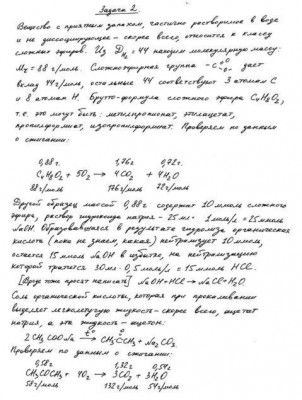 Задача 2.
Вещество с приятным запахом, частично растворимое в воде
и не диссоциирующее - скорее всего, относится к классу
сложных эфиров. Из D_H₂ = 44 находим молекулярную массу:
M_x = 88 г/моль. Сложноэфирная группа -C даёт
вклад 44 г/моль, остальные 44 соответствуют 3 атомам C
и 8 атомам H. Брутто-формула сложного эфира C₄H₈O₂,
т.е. это могут быть: метилпропионат, этилацетат,
пропилформиат, изопропилформиат. Проверяем по данным
о сжигании:
0,88г. 1,76г 0,72г.
C₄H₈O₂ + 5O₂ → 4CO₂ + 4H₂O
88г/моль 176г/моль 72г/моль
Другой образец массой 0,88г содержит 10 ммоль сложного
эфира, раствор гидроксида натрия - 25 мл · 1 моль/л = 25 ммоль
NaOH. Образовавшаяся в результате гидролиза органическая
кислота (пока не знаем, какая) нейтрализует 10 ммоль,
остаётся 15 ммоль NaOH в избытке, на нейтрализацию
которой тратится 30 мл · 0,5 моль/л = 15 ммоль HCl.
[ тоже просят написать] NaOH + HCl → NaCl + H₂O.
Соль органической кислоты, которая при прокаливании
выделяет легколетучую жидкость - скорее всего, ацетат
натрия, а эта жидкость - ацетон:
2 CH₃COONa →(t°) CH₃CCH₃ + Na₂CO₃.
Проверяем по данным о сжигании:
0,58г 1,32г 0,54г
CH₃COCH₃ + 4O₂ → 3CO₂ + 3H₂O
58г/моль 132г/моль 54г/моль